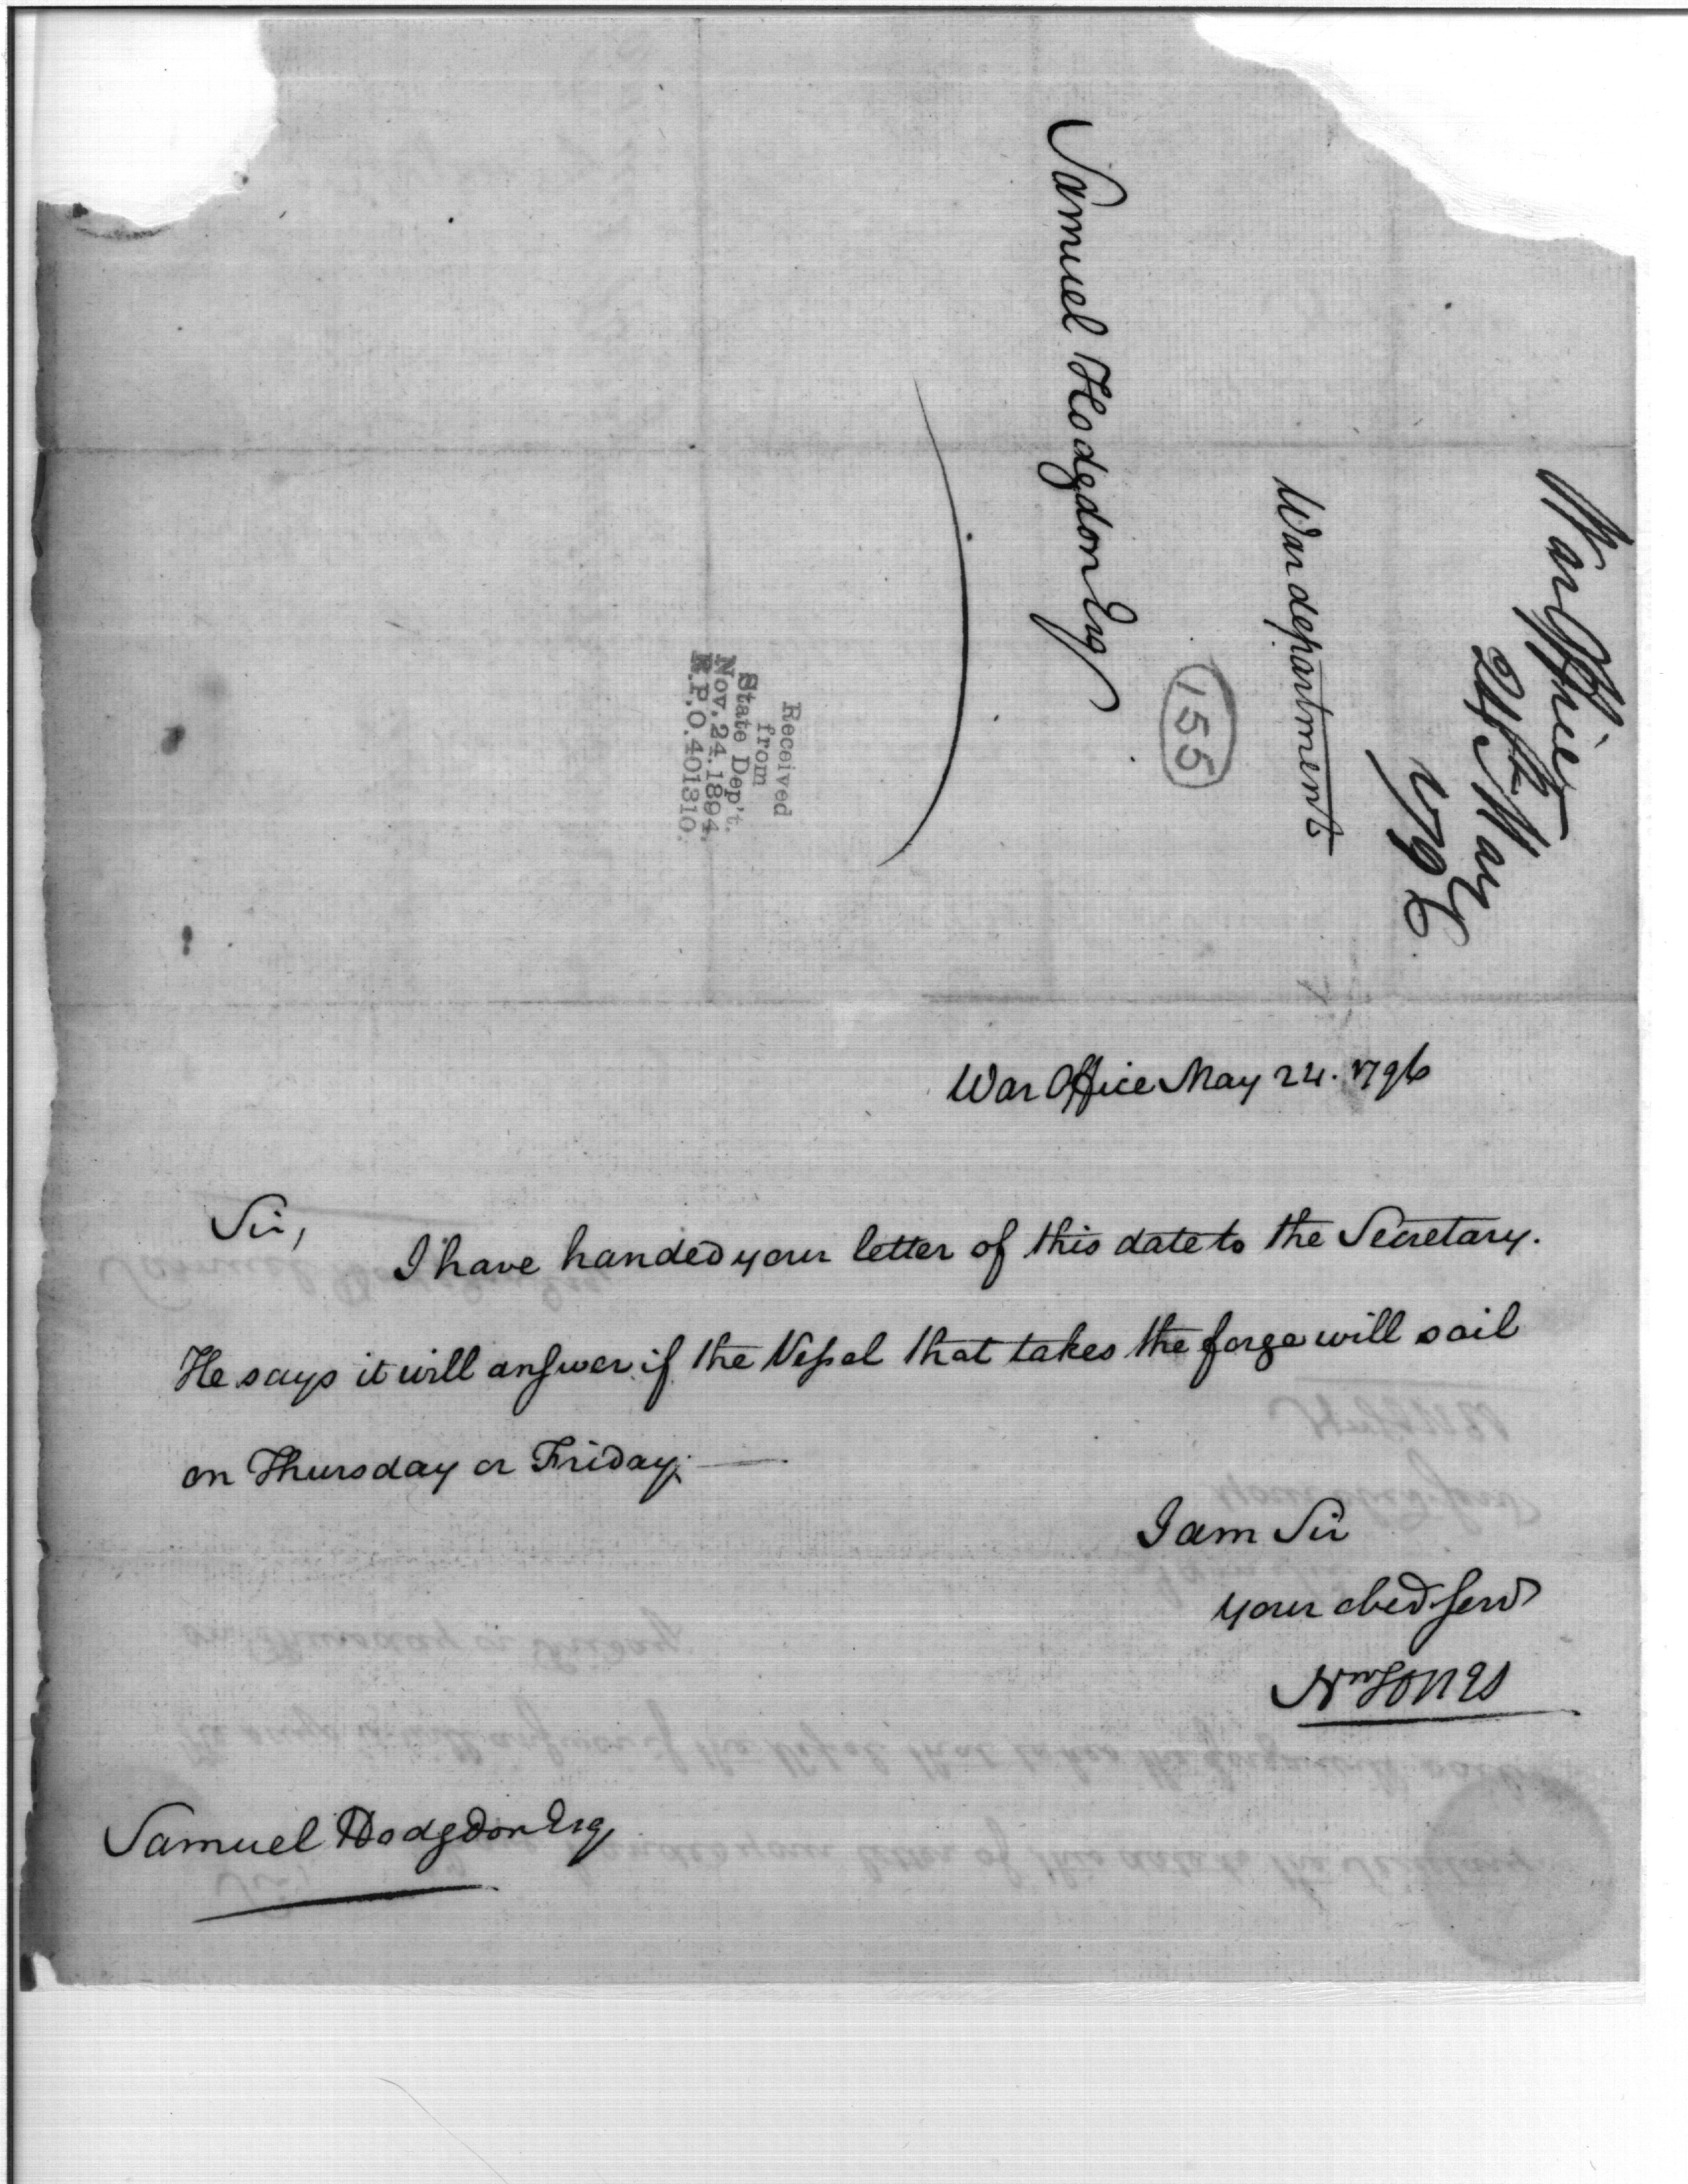 War Office
24th May
1796
War department
155
Samuel Hodgdon Esq
Received
from
State Dep't.
Nov. 24. 1894.
R.P.O. 401310.
War Office May 24. 1796
Sir,
I have handed your letter of this date to the Secretary.
He says it will anſwer if the Veſsel that takes the forge will sail
on Thursday or Friday. —
I am Sir
your obed ſervt
Wm Jones
Samuel Hodgdon Esq